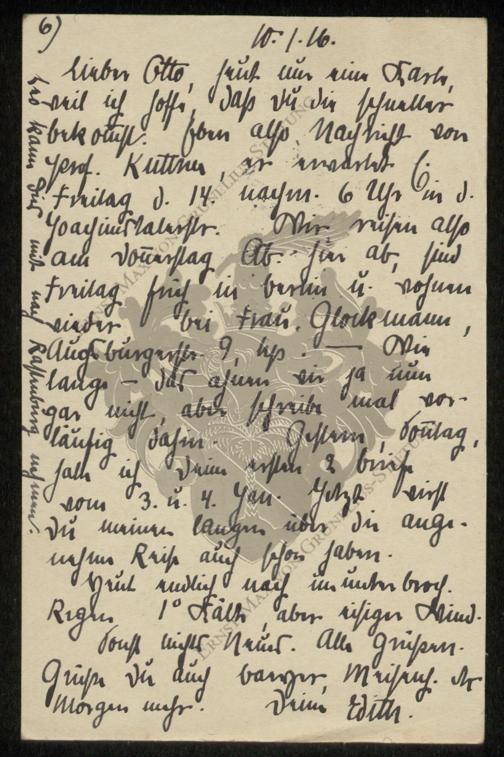 6)
10.1.16.
Lieber Otto, heut nur eine Karte,
weil ich hoffe, daß Du die schneller
bekommst. Eben also Nachricht von
Prof. Kuttner, er erwartet
Freitag d. 14. nachm. 6 Uhr in d.
Joachimstalerstr. Wir reisen also
am Donnerstag Ab. hier ab, sind
Freitag früh in Berlin u. wohnen
wieder bei Frau Glockmann,
Augsburgerstr. 9, Wie
lange – das ahnen wir ja nun
gar nicht, aber schreibe mal vor-
läufig dahin. Gestern, Sonntag,
hab ich Deine ersten 2 Briefe
vom 3. u. 4. Jan. Jetzt wirst
Du meinen langen über die ange-
nehme Reise auch schon haben.
Heut endlich nach ununterbroch.
Regen 1° Kälte, aber eisiger Wind.
Sonst nichts Neues. Alle grüßen.
Grüße Du auch
Morgen mehr. Deine Edith.
kann Dies mit nach Rastenburg nehmen.
ERNST MAX VON GRUNELIUS-STIFTUNG
ERNST MAX VON GRUNELIUS-STIFTUNG